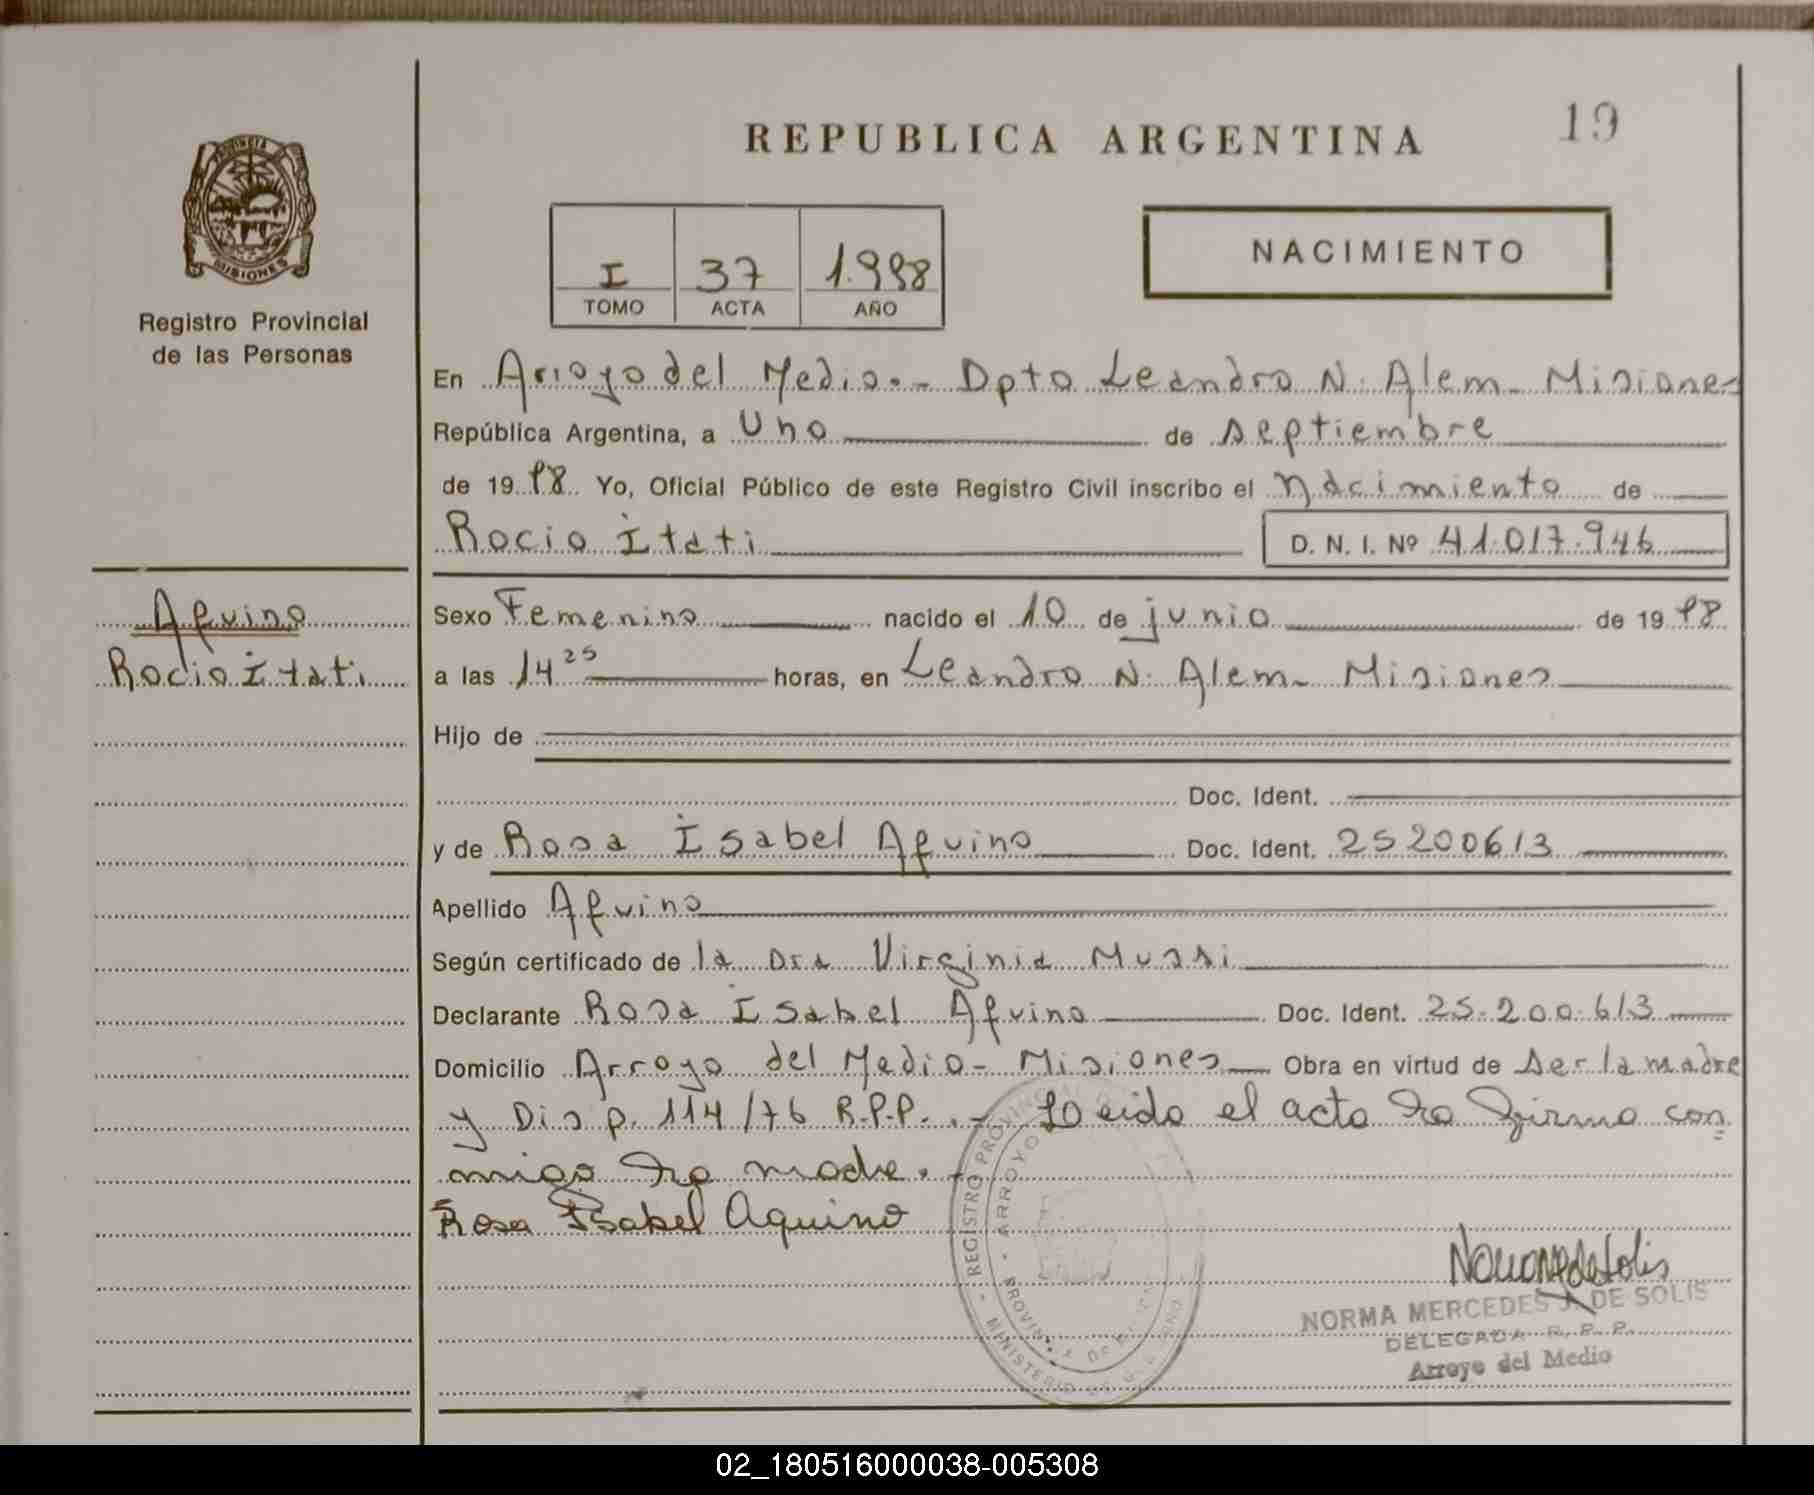 REPUBLICA ARGENTINA
19
PROVINCIA DE
MISIONES
Registro Provincial
de las Personas
I 37 1.998
TOMO ACTA AÑO
NACIMIENTO
En Arroyo del Medio.- Dpto Leandro N. Alem - Misiones
República Argentina, a Uno de septiembre
de 19 98 Yo, Oficial Público de este Registro Civil inscribo el nacimiento de
Rocio Itati D. N. I. Nº 41.017.946
Aquino
Rocio Itati
Sexo Femenino nacido el 10 de junio de 19 98
a las 14 25 horas, en Leandro N. Alem - Misiones
Hijo de
Doc. Ident.
y de Rosa Isabel Aquino Doc. Ident. 25200613
Apellido Aquino
Según certificado de la Dra Virginia Mussi
Declarante Rosa Isabel Aquino Doc. Ident. 25.200.613
Domicilio Arroyo del Medio - Misiones Obra en virtud de ser la madre
y Disp. 114/76 R.P.P. .- Leido el acta la firma con
migo la madre.-
Rosa Isabel Aquino
REGISTRO PROVINCIAL
ARROYO
PROVINCIA DE
MINISTERIO DE
NORMA MERCEDES J. DE SOLIS
DELEGADA R. P. P.
Arroyo del Medio
02_180516000038-005308